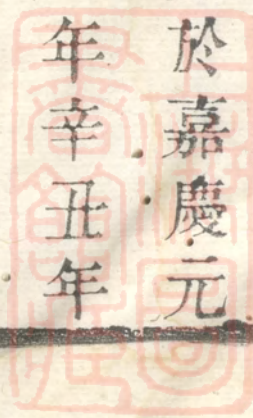 於嘉慶元
年辛丑年